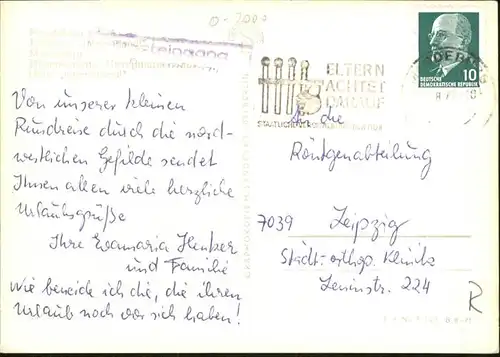 0-7000
Steingang
ELTERN
ACHTET
DARAUF
STAATLICHE
DEUTSCHE
DEMOKRATISCHE REPUBLIK
10
Von unserer kleinen
Rundreise durch die nord-
westlichen Gefilde sendet
Ihnen allen viele herzliche
Urlaubsgrüße
Ihre Evamaria
und Familie
Wie beneide ich die, die ihren
Urlaub noch vor sich haben!
An die
Röntgenabteilung
7039 Leipzig
Städt. orthop. Klinik
Leninstr. 224
R